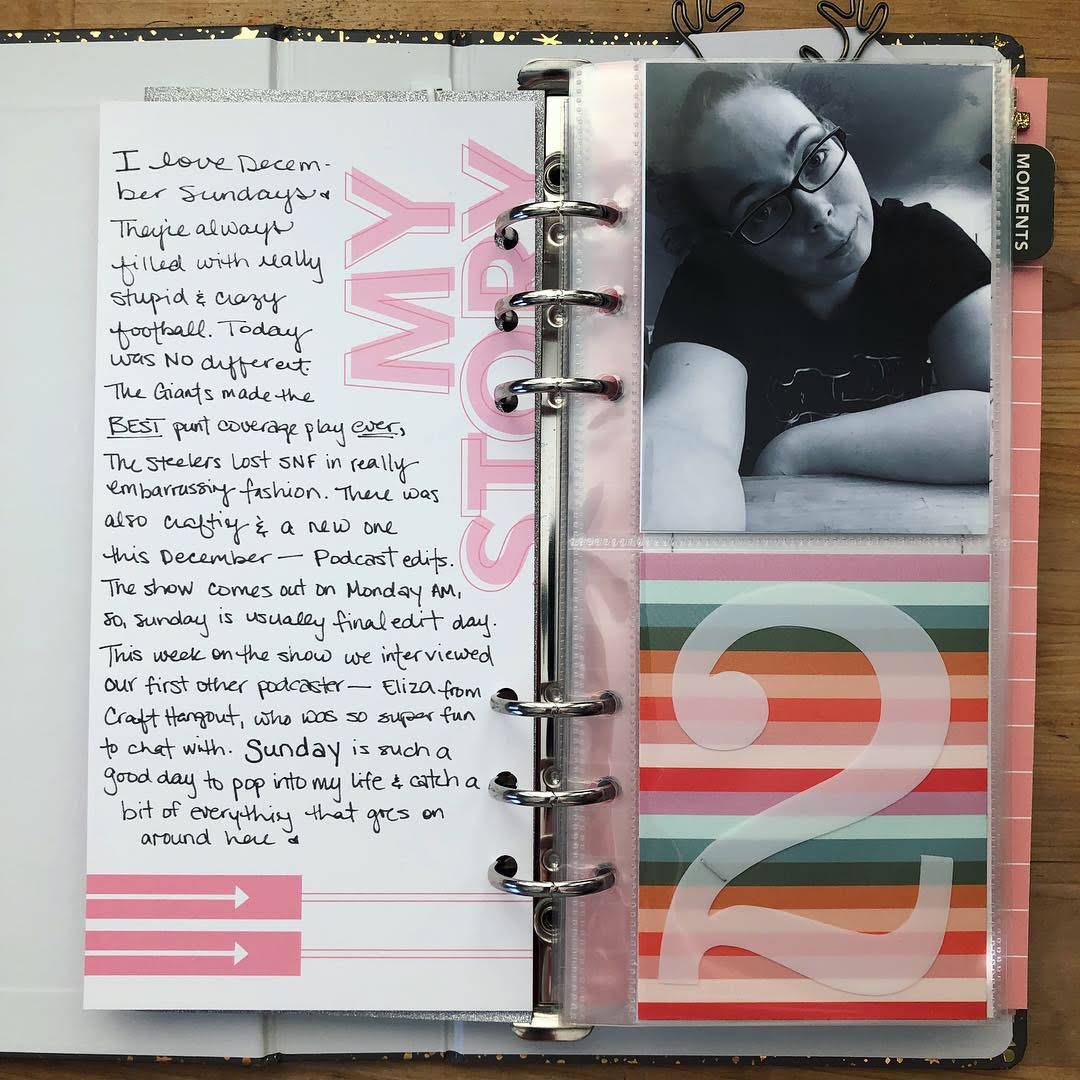 I love Decem-
ber Sundays.
They're always
filled with really
stupid & crazy
football. Today
was NO different.
The Giants made the
BEST punt coverage play ever,
The Steelers Lost SNF in really
embarrassing fashion. There was
also crafting & a new one
this December — Podcast edits.
The show comes out on Monday AM,
so, Sunday is usually final edit day.
This week on the show we interviewed
our first other podcaster — Eliza from
Craft Hangout, who was so super fun
to chat with. Sunday is such a
good day to pop into my life & catch a
bit of everything that goes on
around here
MY
STORY
MOMENTS
2